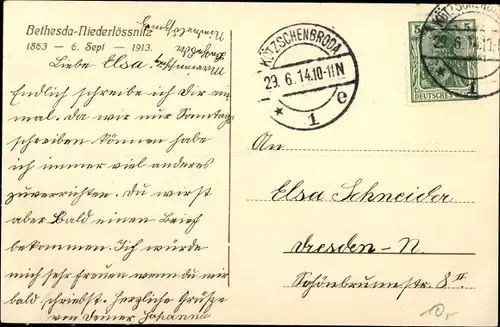 Bethesda-Niederlössnitz
1863 — 6. Sept — 1913.
Liebe Elsa.
Endlich schreibe ich Dir ein-
mal. Da wir nur Sonntag
schreiben können habe
ich immer viel anderes
zuverrichten. Du wirst
aber bald einen Brief
bekommen. Ich würde
mich sehr freuen wenn du mir
bald schriebst. Herzliche Grüsse
von Deiner Johanna
KÖTZSCHENBRODA
29.6.14.10-11N
* 1 e
5 5
DEUTSCHES
KÖTZSCHENBRODA
29.6.14
1
An
Elsa Schneider
Dresden-N.
Schönbrunnstr. 8 II
10,-